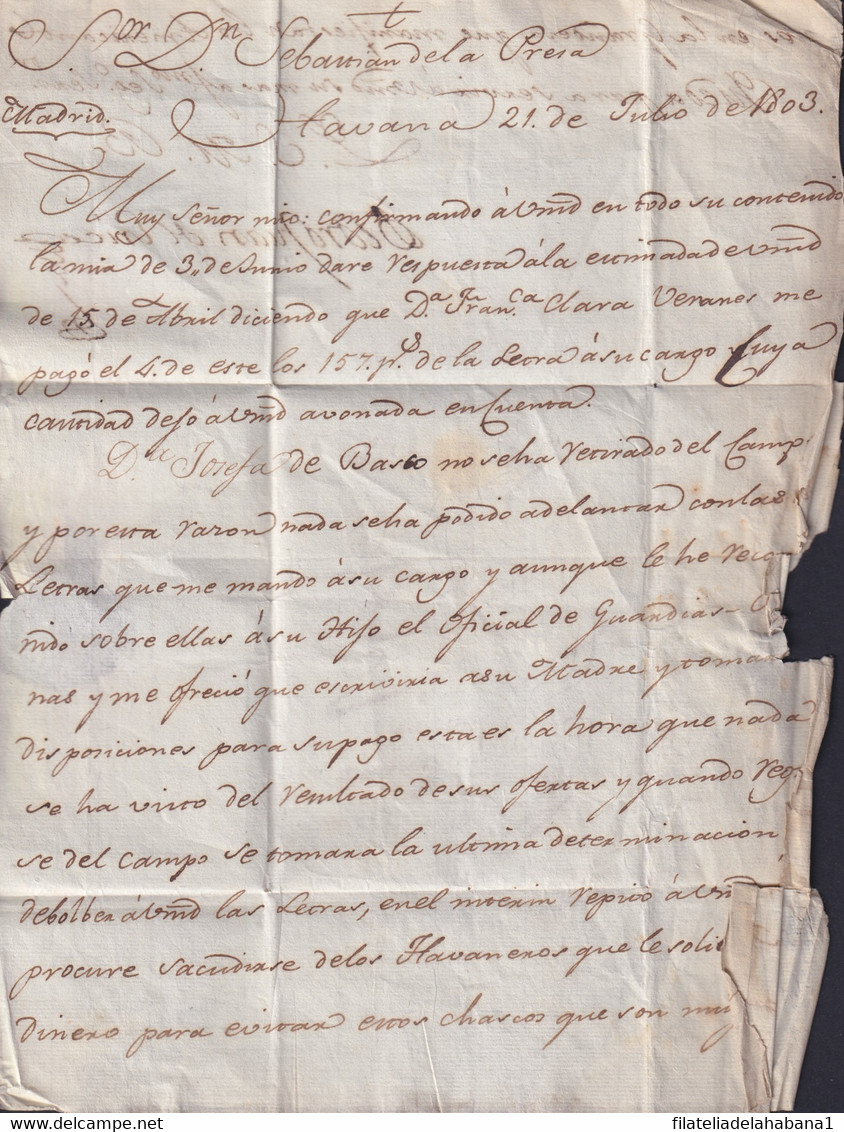 Sor. Dn. Sebastian de la Presa
Madrid.
Havana 21. de Julio de 1803.
Muy señor mio: confirmando á Vmd en todo su contenido
la mia de 3,, de Junio dare respuesta á la estimada de Vmd
de 15. de Abril diciendo que Da. Franca. Clara Veranes me
pagó el 4. de este los 157. ps. de la Letra á su cargo cuya
cantidad dejo á Vmd avonada en Cuenta.
Da. Josefa de Basco no se ha retirado del Camp
y por esta razon nada se ha podido adelantar con las
Letras que me mandó á su cargo y aunque le he reco
nido sobre ellas á su Hijo el Oficial de Guardias
nas y me ofreció que escriviria a su Madre y tomar
disposiciones para su pago esta es la hora que nada
se ha visto del resultado de sus ofertas y quando reg.
se del campo se tomara la ultima determinacion
debolber á Vmd las Letras, en el interin repito á Vmd
procure sacudirse de los Havaneros que le soli
dinero para evitar estos chascos que son muy
filateliadelahabana1